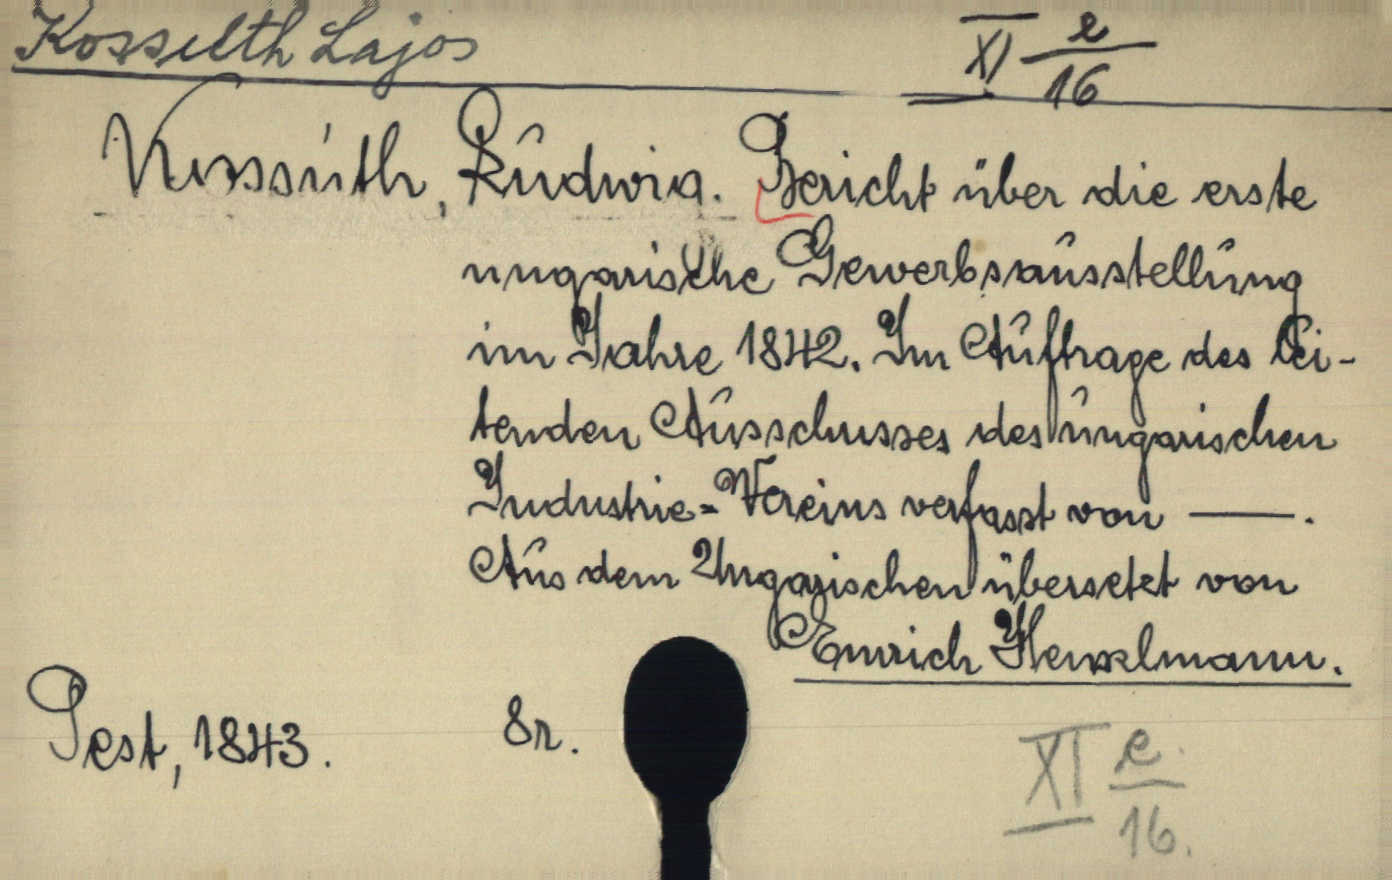 Kossuth Lajos
XI e/16
Kossúth, Ludwig. Bericht über die erste
ungarische Gewerbsausstellung
im Jahre 1842. Im Auftrage des Lei-
tenden Ausschusses des ungarischen
Industrie=Vereins verfasst von —.
Aus dem Ungarischen übersetzt von
Emrich Henszlmann.
Pest, 1843. 8r.
XI e/16.